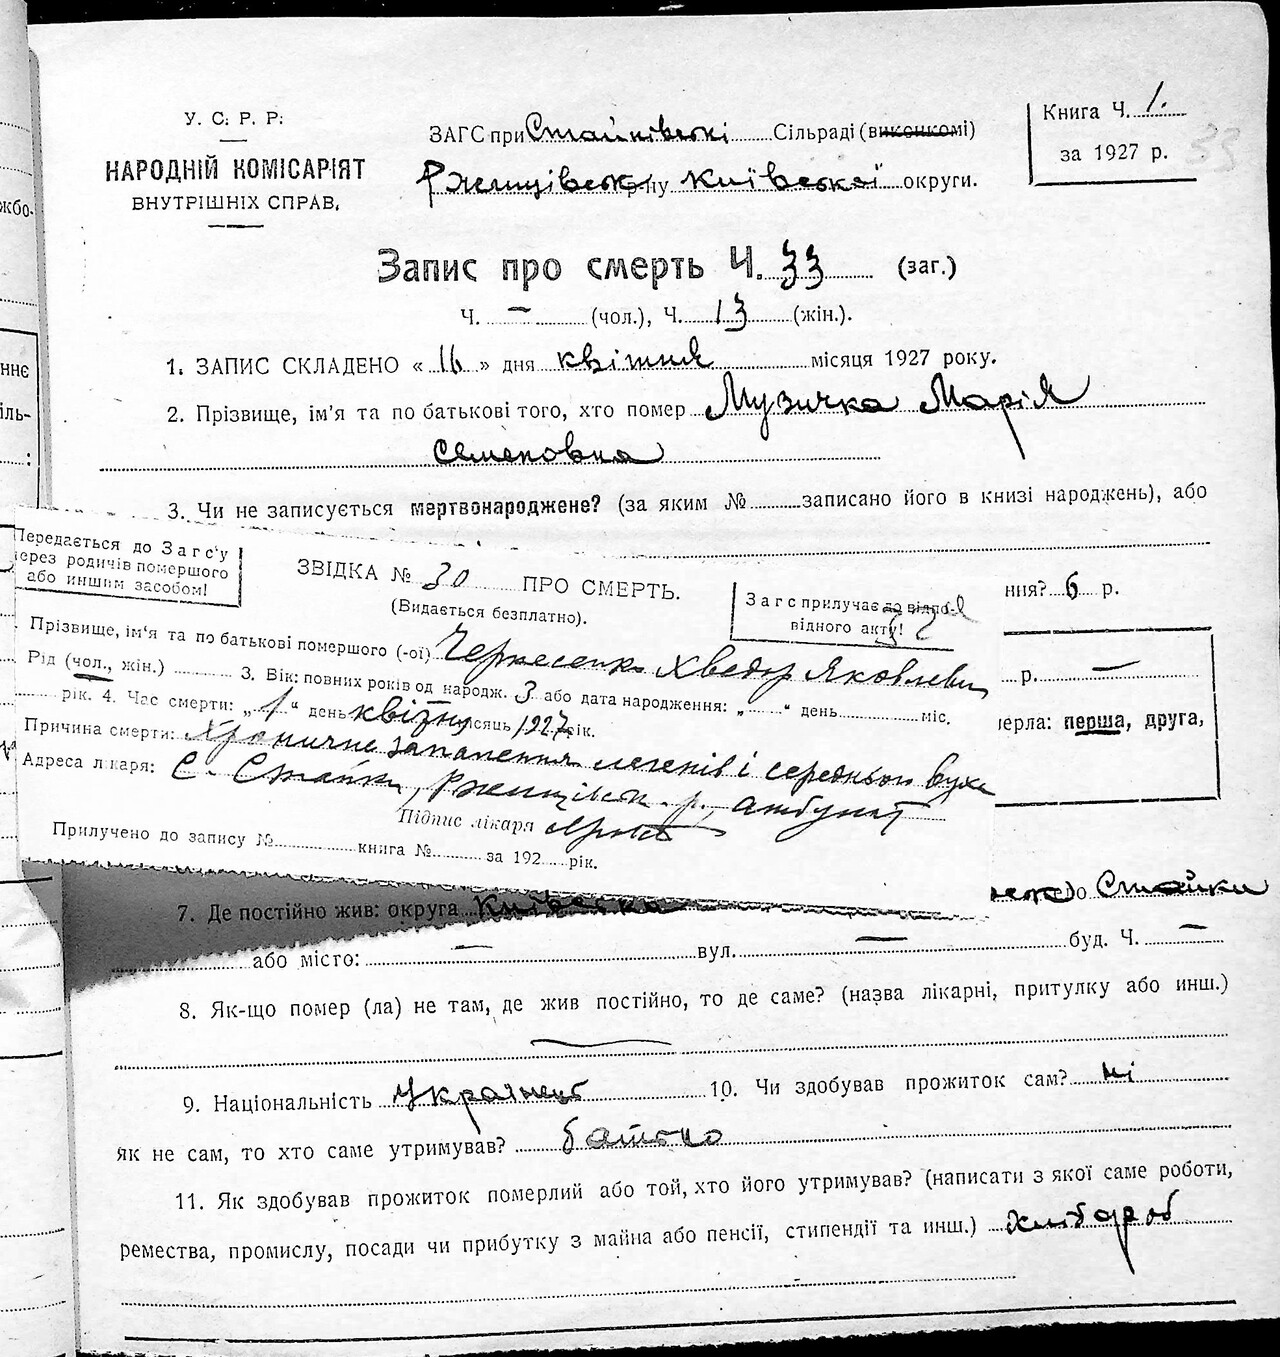 У. С. Р. Р.
НАРОДНІЙ КОМІСАРІЯТ
ВНУТРІШНІХ СПРАВ.
ЗАГС при Стайківські Сільраді (виконкомі)
Ржищівськ ну Київської округи.
Книга Ч. 1.
за 1927 р.
33
Запис про смерть Ч. 33 (заг.)
Ч. – (чол.), Ч. 13 (жін.).
1. ЗАПИС СКЛАДЕНО « 16 » дня квітня місяця 1927 року.
2. Прізвище, ім'я та по батькові того, хто помер Музичка Марія
Семеновна
3. Чи не записується мертвонароджене? (за яким № записано його в книзі народжень), або
ння? 6 р.
р. —
мерла: перша, друга,
Передається до Загс'у
через родичів помершого
або иншим засобом!
ЗВІДКА № 30 ПРО СМЕРТЬ.
(Видається безплатно).
Загс прилучає до відпо-
відного акту!
Прізвище, ім'я та по батькові помершого (-ої) Черкесенко Хведор Яковлевич
Рід (чол., жін.) 3. Вік: повних років од народж. 3 або дата народження: „ “ день міс.
рік. 4. Час смерти: „ 1 “ день квітну місяць 1927 рік.
Причина смерти: Хроничне запалення легенів і середньои вухи
Адреса лікаря: С. Стайки, Ржищівськ. р., амбулат
Підпис лікаря
Прилучено до запису № книга № за 192 рік.
7. Де постійно жив: округа Київська до Стайки
або місто: — вул. — буд. Ч. —
8. Як-що помер (ла) не там, де жив постійно, то де саме? (назва лікарні, притулку або инш.)
9. Національність Українець 10. Чи здобував прожиток сам? ні
як не сам, то хто саме утримував? батько
11. Як здобував прожиток померлий або той, хто його утримував? (написати з якої саме роботи,
ремества, промислу, посади чи прибутку з майна або пенсії, стипендії та инш.) хлібороб